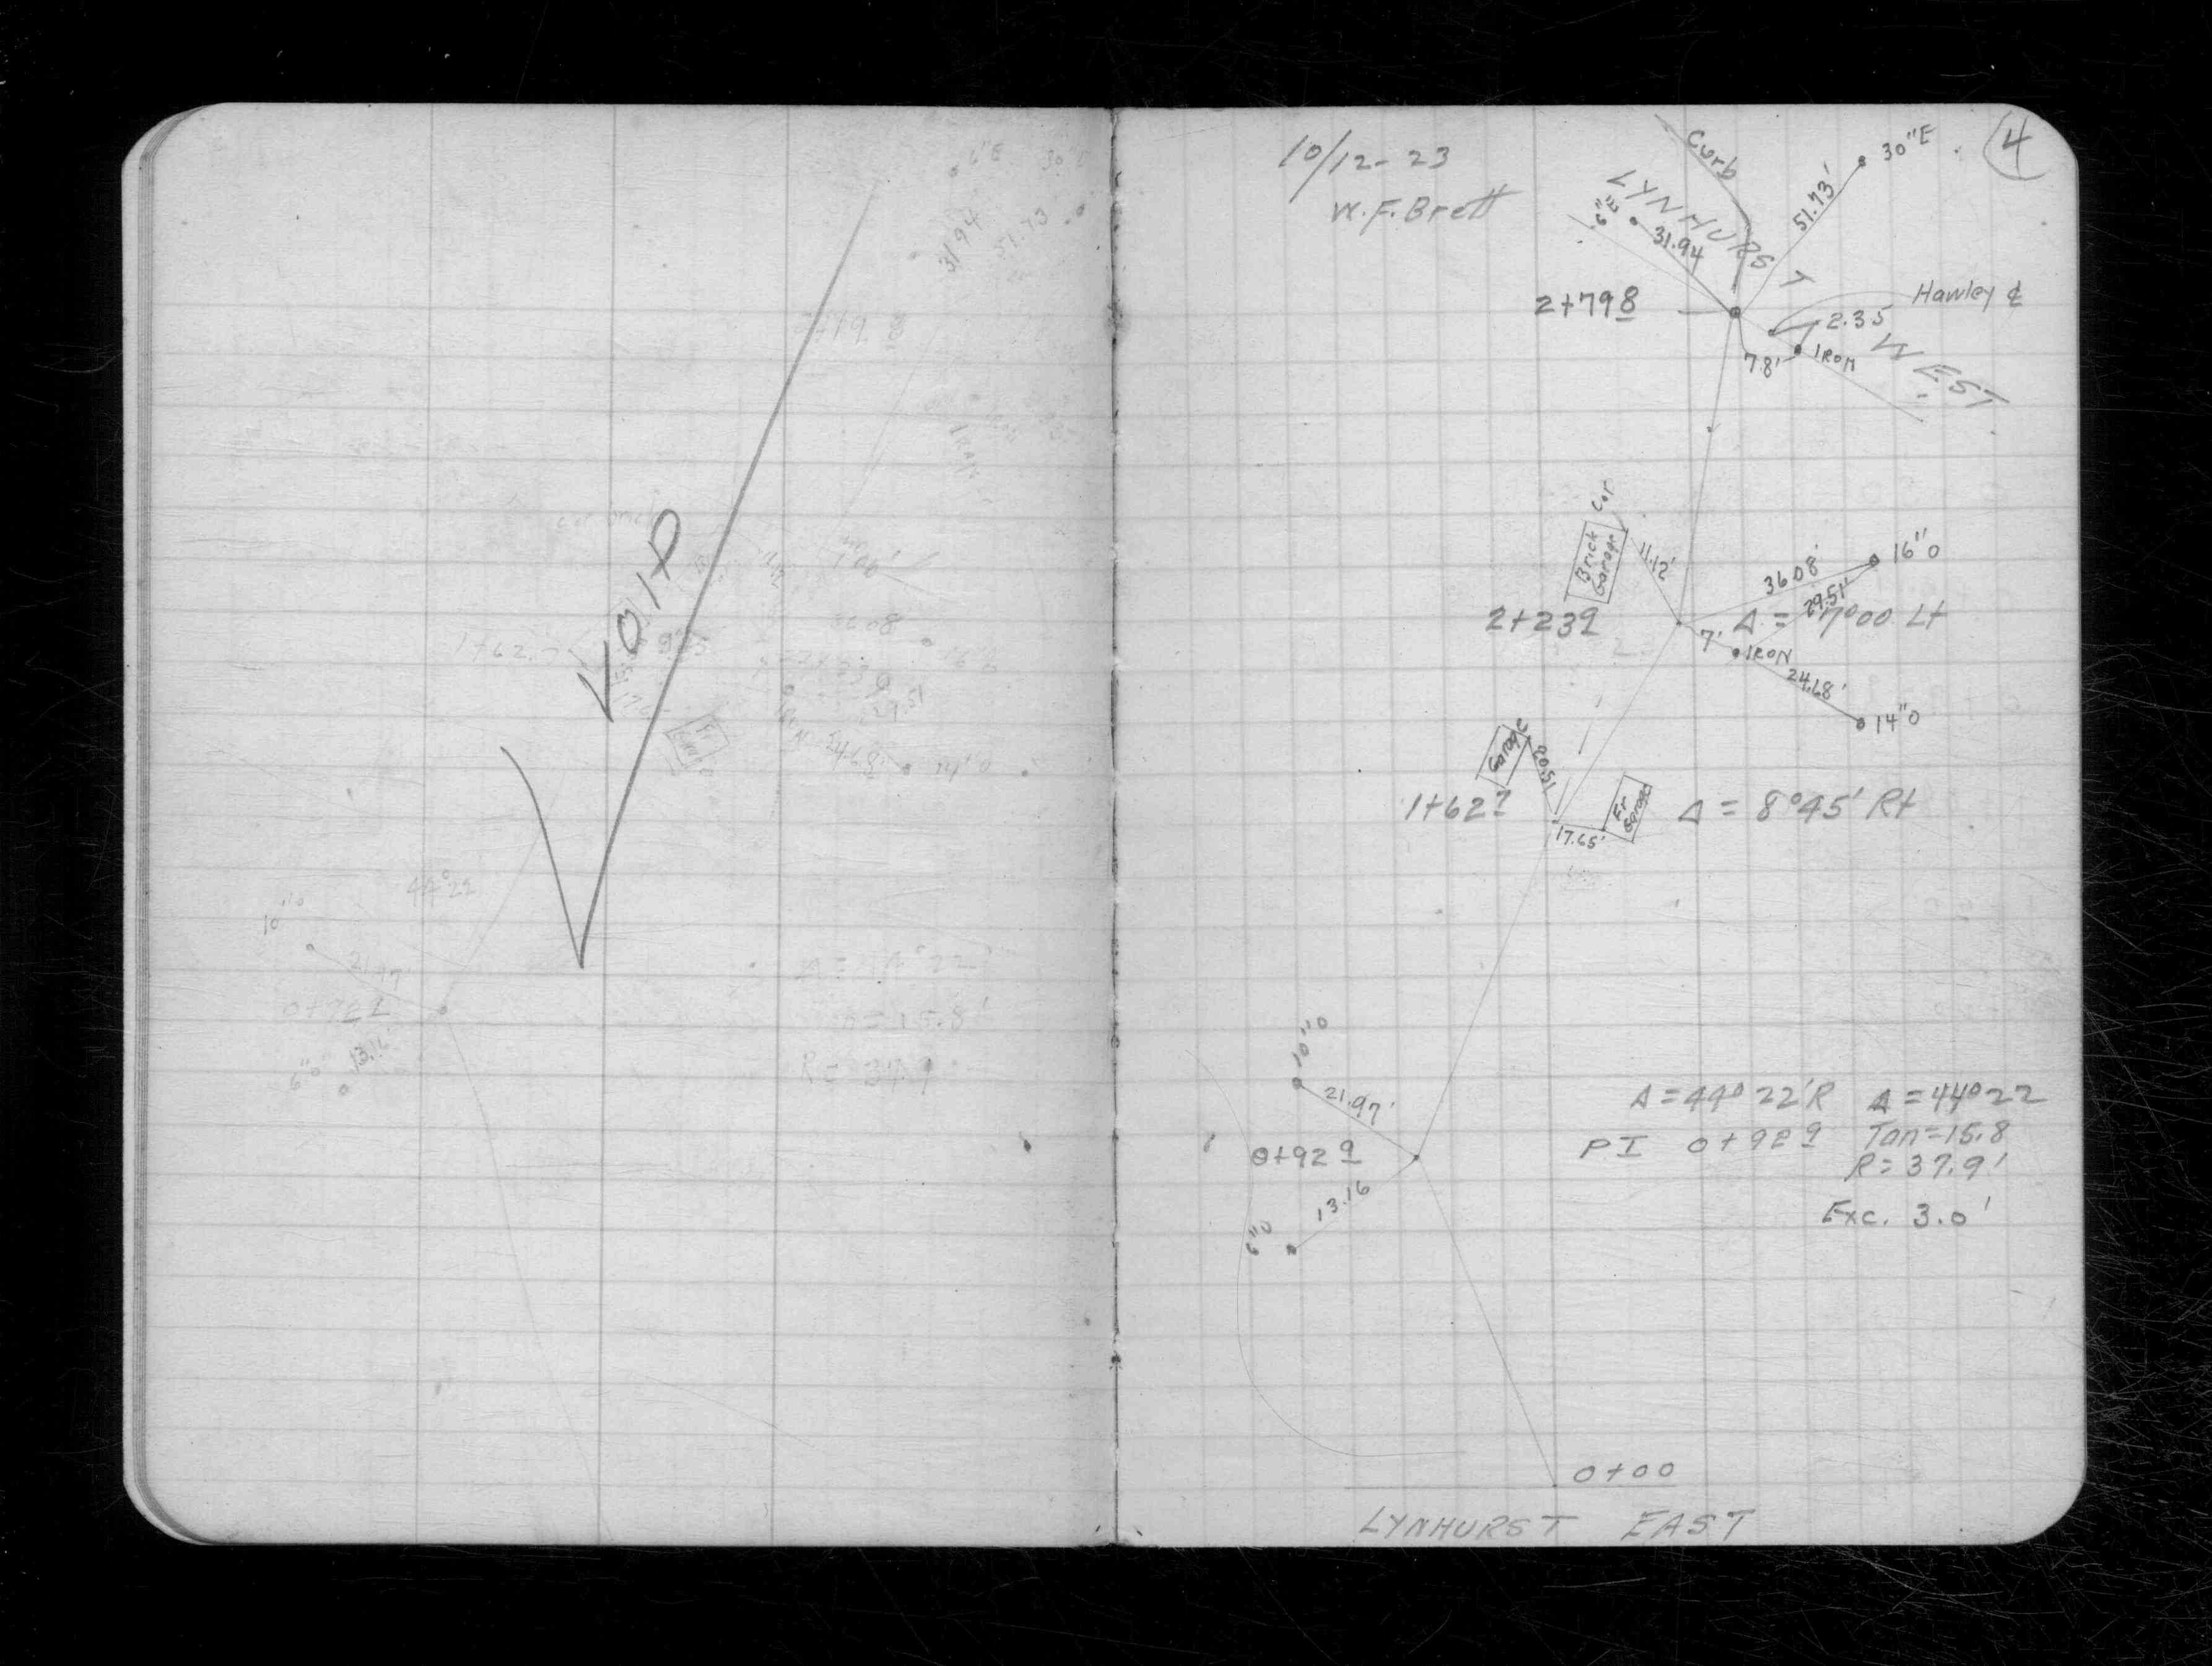 VOID
6"E
31.94
51.73
2+79
11.12
1+62.7
2+239
29.51
24.68'
14"0
44°22
10"0
21.97
0+929
6"0
13.16
Δ=44°22'
R=37.9
4
10/12-23
W.F. Brett
Curb
30"E
51.73'
LYNHURST
6"E
31.94
Hawley ℄
2+798
2.35
7.8'
IRON
WEST
Cor
Brick Garage
11.12'
16"0
36.08'
29.51'
2+239
Δ = 7°00 Lt
7'
IRON
24.68'
14"0
Garage
20.51
1+627
Fr Garage
Δ = 8°45' Rt
17.65'
10"0
21.97'
Δ=44°22'R Δ=44°22
PI 0+929 Tan=15.8
0+929
R=37.9'
13.16
Exc. 3.0'
6"0
0+00
LYNHURST EAST